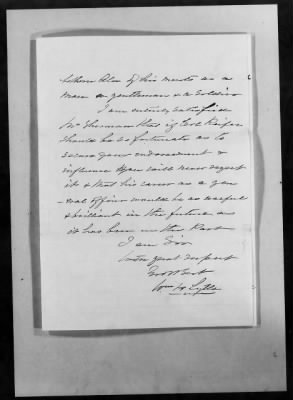 them also of his merits as a
man a gentleman & a Soldier
I am entirely satisfied
Mr Sherman that if Col Keifer
should be so fortunate as to
secure your endorsement &
influence you will never regret
it & that his career as a gen
eral officer would be as useful
& brilliant in the future as
it has been in the Past
I am Sir
with great respect
Your Obt Svt
Wm H Lytle